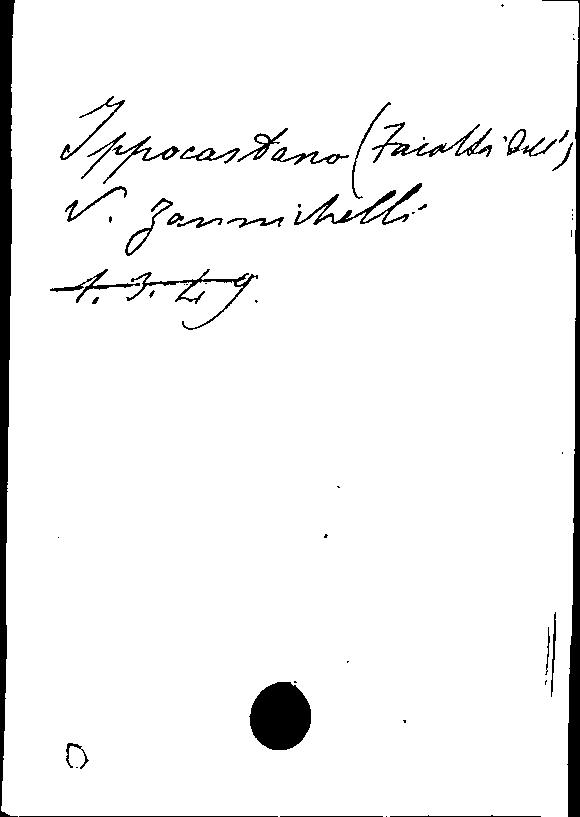 Ippocastano (Facoltà dell')
V. Zannichelli
1. 3. 49.